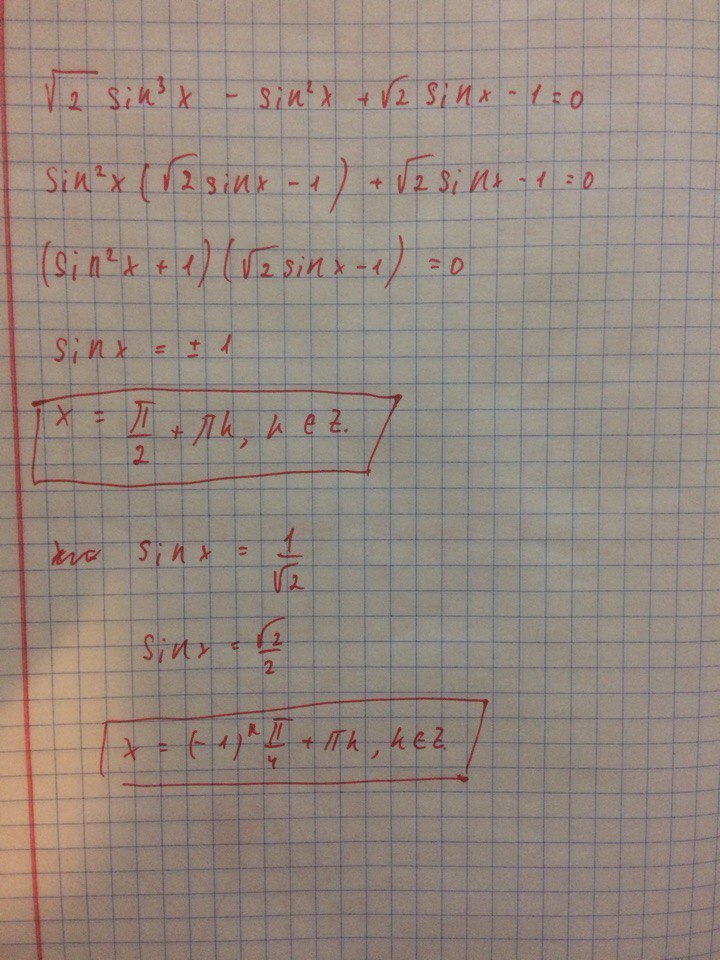 √2 sin³x - sin²x + √2 sinx - 1 = 0
sin²x (√2 sinx - 1) + √2 sinx - 1 = 0
(sin²x + 1)(√2 sinx - 1) = 0
sinx = ± 1
x = π/2 + πn, n ∈ Z.
sinx = 1/√2
sinx = √2/2
x = (-1)ⁿ π/4 + πn, n ∈ Z.